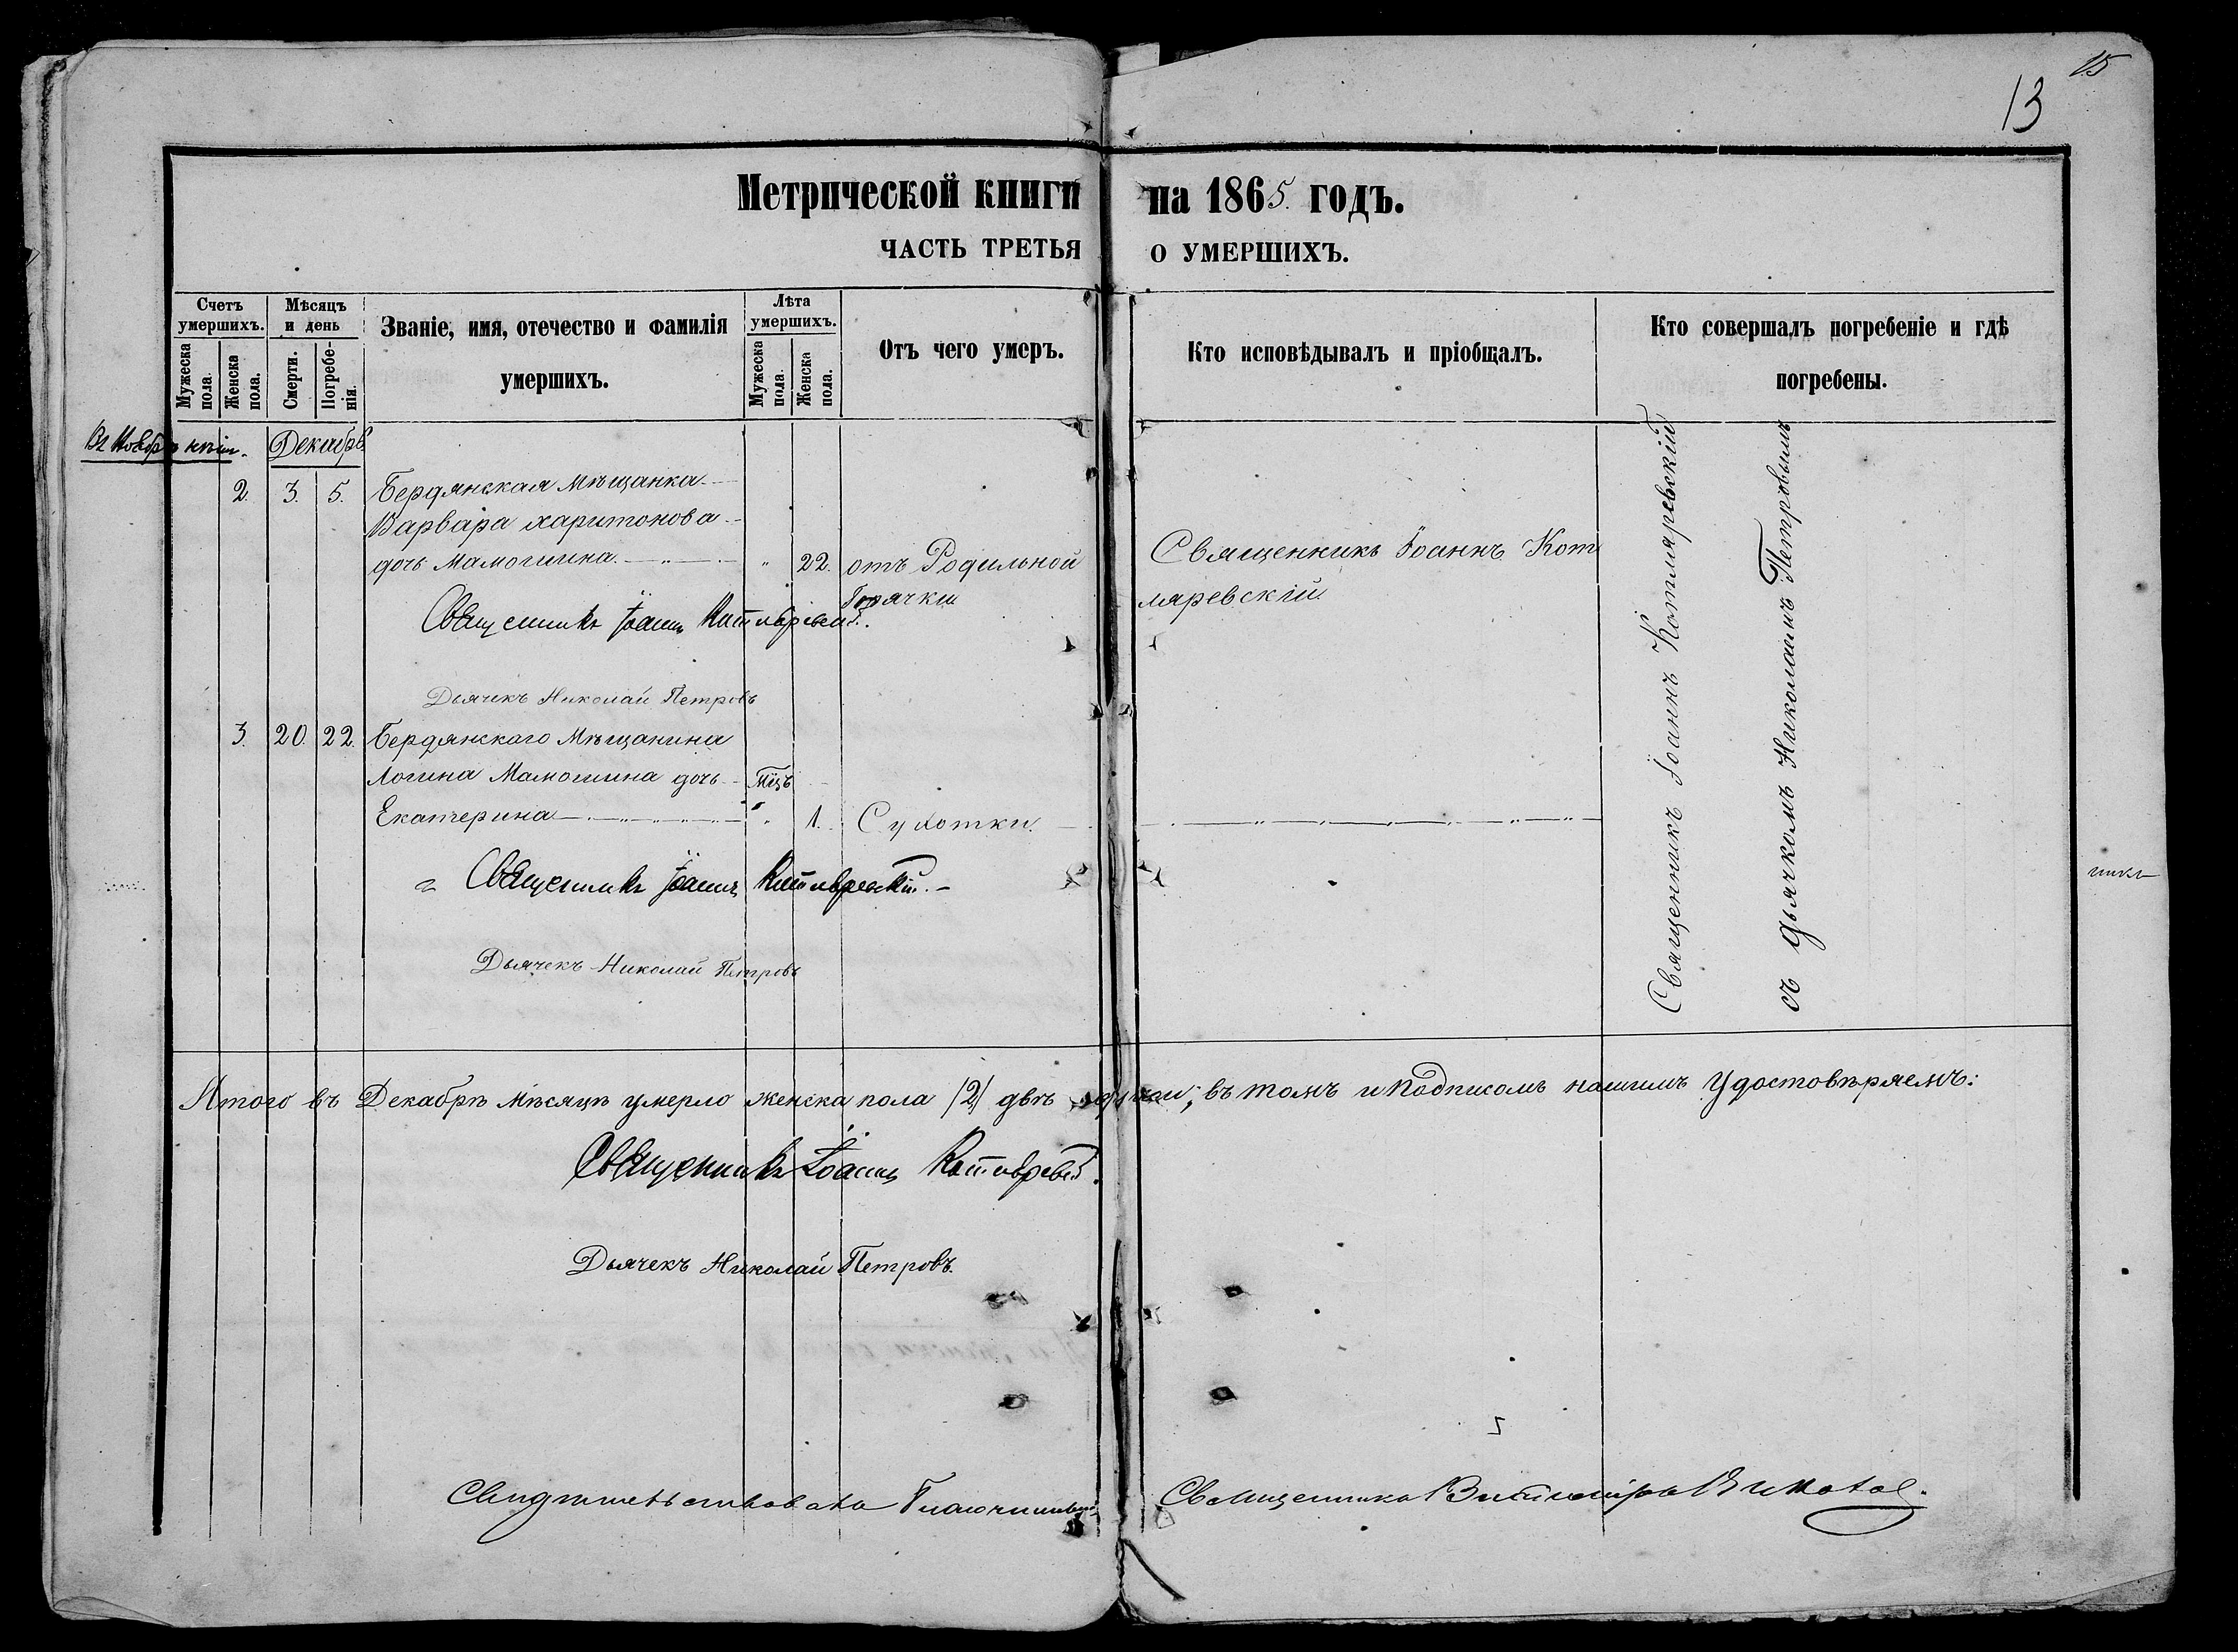 15
13
Метрической книги на 1865 годъ.
ЧАСТЬ ТРЕТЬЯ О УМЕРШИХЪ.
Счетъ умершихъ.
Мужеска пола.
Женска пола.
Мѣсяцъ и день
Смерти.
Погребенія.
Званіе, имя, отечество и фамилія
умершихъ.
Лѣта умершихъ.
Мужеска пола.
Женска пола.
Отъ чего умеръ.
Кто исповѣдывалъ и пріобщалъ.
Кто совершалъ погребеніе и гдѣ
погребены.
Декабрь
2. 3. 5. Бердянская мѣщанка
Варвара харитонова
дочь Мамошина " 22. отъ Родильной
Горячки
Священникъ Іоаннъ Кот
ляревскій.
Священникъ Іоаннъ Котляревскій.
Дьячекъ Николай Петровъ
3. 20. 22. Бердянскаго Мѣщанина
Логина Мамошина дочь Мѣцъ
Екатерина " 1. Сухотки.
Священникъ Іоаннъ Котляревскій.
Дьячекъ Николай Петровъ
Священникъ Іоаннъ Котляревскій
съ дьячкомъ Николаемъ Петровымъ
Итого въ Декабрѣ мѣсяцѣ умерло женска пола /2/ двѣ въ томъ и подписомъ нашимъ Удостовѣряемъ:
Священникъ Іоаннъ Котляревскій.
Дьячекъ Николай Петровъ.